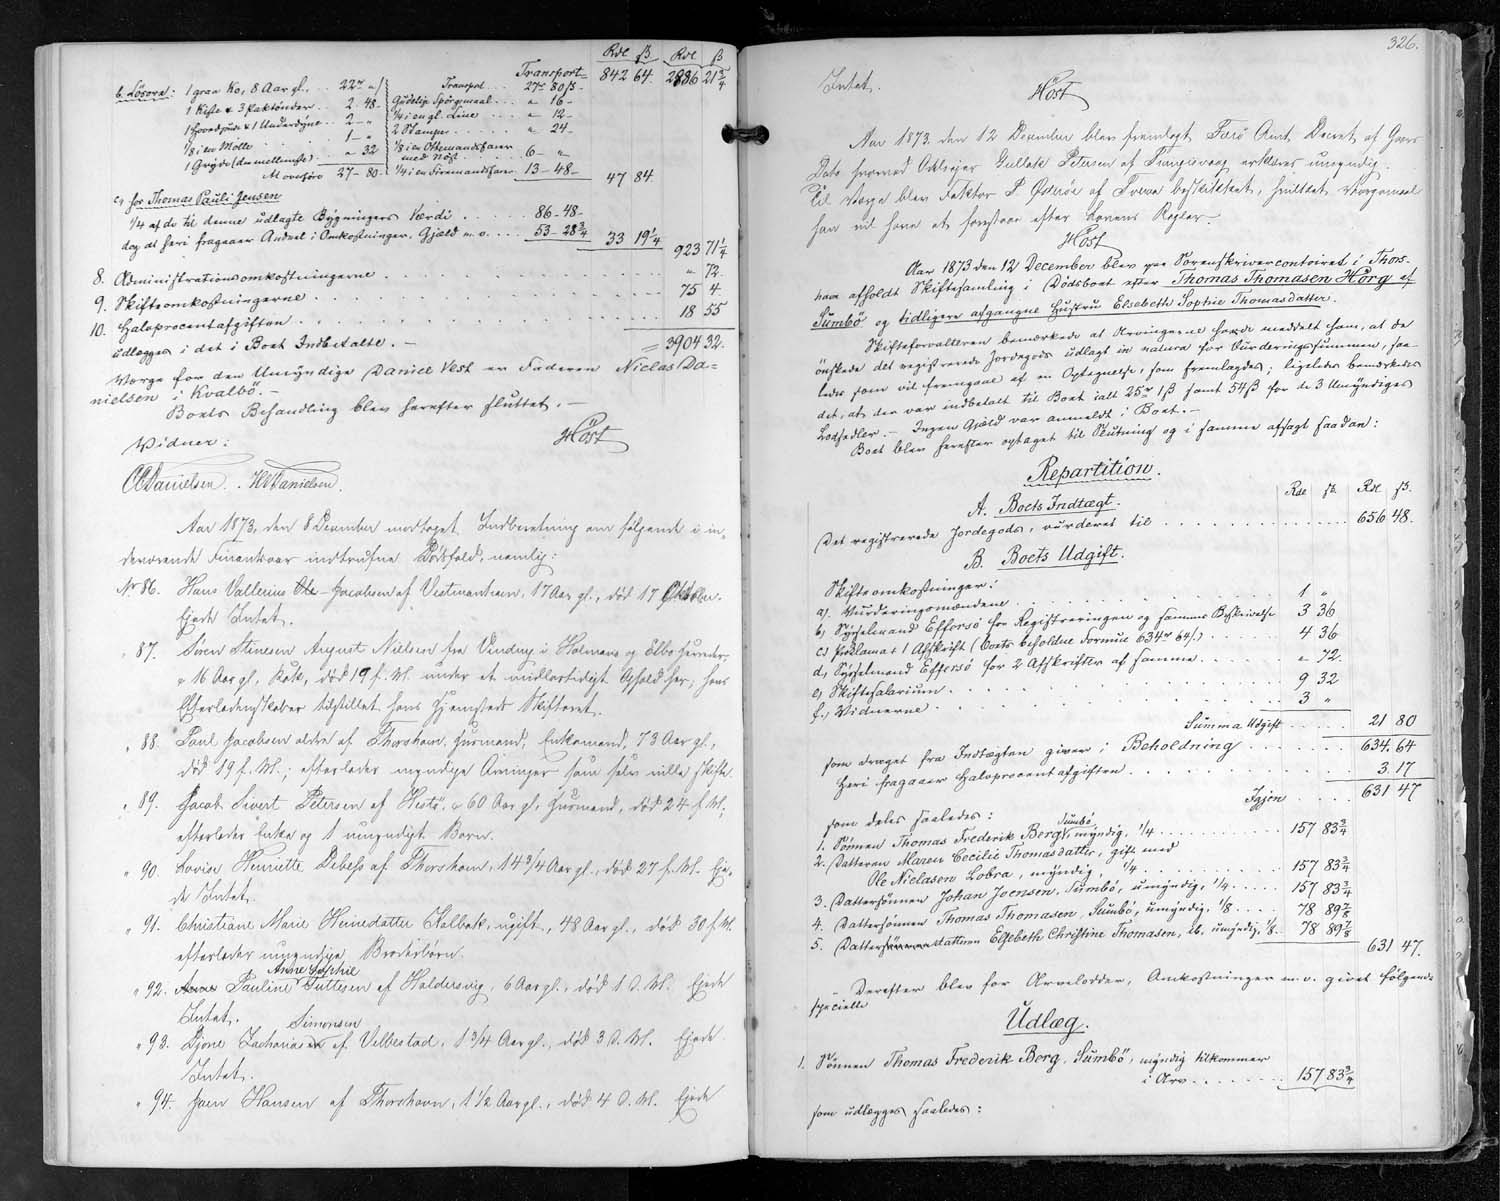 Rdl ß Rdl ß
Transport 842 64. 2886 21 3/4
b. Lösöre: 1 graa Ko, 8 Aar gl. . 22 rd "
1 Kiste & 3 Saltönder . . 2 - 48 -
1 Hovedpude & 1 Underdyne . . 2 - "
1/8 i en Mölle . . . 1 - "
1 Gryde (den mellemste) . . " - 32
At overföre 27 - 80 -
Transport . . . 27 rd 80 ß -
Gudelig Spörgsmaal . . . " 16 -
1/4 i en gl. Line . . . " 12 -
2 Stampe . . . . . " 24 -
1/8 i en Ottemandsfarer
med Nöst . . . . 6 - "
1/4 i en Firemandsfarer 13 - 48 -
47 84.
c, for Thomas Pauli Jensen
1/4 af de til denne udlagte Bygningers Værdi . . . . . 86 - 48 -
dog at heri fragaaer Andeel i Omkostninger, Gjæld m. v. . . . 53 - 28 3/4
33 19 1/4
923 71 1/4
8. Administrationsomkostningerne . . . . . . " 72.
9. Skifteomkostningerne . . . . . . 75 4
10. Halvprocentafgiften . . . . . . 18 55
udlægges i det i Boet Indbetalte. — = 3904 32.
Værge for den Umyndige Daniel Vest er Faderen Niclas Da=
nielsen i Kvalbö. —
Boets Behandling blev herefter sluttet. —
Vidner: Höst
Danielsen. . Danielsen.
Aar 1873, den 8 December modtoget Indberetning om følgende i in=
deværende Finantsaar indtrufne Dödsfald, nemlig:
Nr 86. Hans Vallerius Ole Jacobsen af Vestmanhavn, 17 Aar gl., död 17 Oktober.
Ejede Intet.
" 87. Soren Stinesen August Nielsen fra Vinding i Holmans og Elbo Herreder,
" 16 Aar gl, Kok, död 19 f. M. under et midlertidigt Ophold her; hans
Efterladenskaber tilstillet hans Hjemsteds Skifteret.
" 88. Paul Jacobsen ældre af Thorshavn, Huusmand, Enkemand, 73 Aar gl.,
död 19 f. M.; efterlader myndige Arvinger som selv ville skifte.
" 89. Jacob Sivert Petersen af Hestö, " 60 Aar gl., Huusmand, död 24 f. M.;
efterlader Enke og 1 umyndigt Barn.
" 90. Lovise Henriette Debeß af Thorshavn, 14 3/4 Aar gl., död 27 f. M. Eje=
de Intet.
" 91. Christiane Marie Heinedatter Kalbak, ugift, 48 Aar gl., död 30 f. M.
efterlader umyndige Broderbörn.
Anne Sophie
" 92. Anne Pauline Guttesen af Haldersvig, 6 Aar gl., död 1 d. M. Ejede
Intet. Simonsen
" 93. Djone Zachariasen af Velbestad, 1 3/4 Aar gl., död 3 d. M. Ejede
Intet.
" 94. Joen Hansen af Thorshavn, 1 1/2 Aar gl., död 4 d. M. Ejede
326.
Intet. Höst
Aar 1873. den 12 December blev fremlagt Færö Amt Decret af Gaars
Dato hvorved Odelsejer Gullak Petersen af Trangisvaag erklæres umyndig.
Til Værge blev Faktor P. Öderöe af Tveraa beskikket, hvilket Værgemaal
han vil have at forestaae efter Lovens Regler. —
Höst
Aar 1873 den 12 December blev paa Sorenskrivercontoiret i Thors=
havn afholdt Skiftesamling i Dödsboet efter Thomas Thomasen Horg af
Sumbö og tidligere afgangne Hustru Elsebeth Sophie Thomasdatter.
Skifteforvalteren bemærkede at Arvingerne havde meddelt ham, at de
önskede det registrerede Jordegods udlagt in natura for Vurderingssummen, saa=
ledes som vil fremgaae af en Optegnelse, som fremlagdes; ligeledes bemærkedes
det, at der var indbetalt til Boet ialt 25 rd 1 ß samt 54 ß for de 3 Umyndiges
Lodsedler. — Ingen Gjæld var anmeldt i Boet. —
Boet blev herefter optaget til Slutning og i samme afsagt saadan:
Repartition.
A. Boets Indtægt. Rdl ß. Rdl ß.
Det registrerede Jordegods, vurderet til . . . . . . 656 48.
B. Boets Udgift.
Skifteomkostninger:
a). Vurderingsmændene . . . . . . 1 "
b, Sysselmand Effersö for Registreringen og sammes Beskrivelse 3 36
c) Proklamat 1 Afskrift (Boets beholdne Formue 634 rd 64 ß.) . . . . 4 36
d, Sysselmand Effersö for 2 Afskrifter af samme . . . . " 72.
e, Skiftesalarium . . . . . . 9 32
f.) Vidnerne . . . . . . 3 "
Summa Udgift . . . . 21 80
som draget fra Indtægten giver i Beholdning . . . . . . 634. 64
Heri fragaaer Halvprocentafgiften . . . . . . 3. 17
Igjen . . . . . 631 47
som deles saaledes: Sumbö,
1. Sönnen Thomas Frederik Berg, myndig, 1/4 . . . . . . 157 83 3/4
2. Datteren Maren Cecilie Thomasdatter, gift med
Ole Niclasen Lobra, myndig, 1/4 . . . . . . 157 83 3/4
3. Dattersönnen Johan Joensen, Sumbö, umyndig, 1/4 . . . . 157 83 3/4
4. Dattersönnen Thomas Thomasen, Sumbö, umyndig, 1/8 . . . . 78 89 7/8
5. Datterdatteren Elsebeth Christine Thomasen, ib. umyndig, 1/8. 78 89 7/8
631 47.
Derefter blev for Arvelodder, Omkostninger m. v. givet følgende
specielle
Udlæg.
1. Sönnen Thomas Frederik Berg, Sumbö, myndig tilkommer
i Arv . . . . . . . 157 83 3/4
som udlægges saaledes: